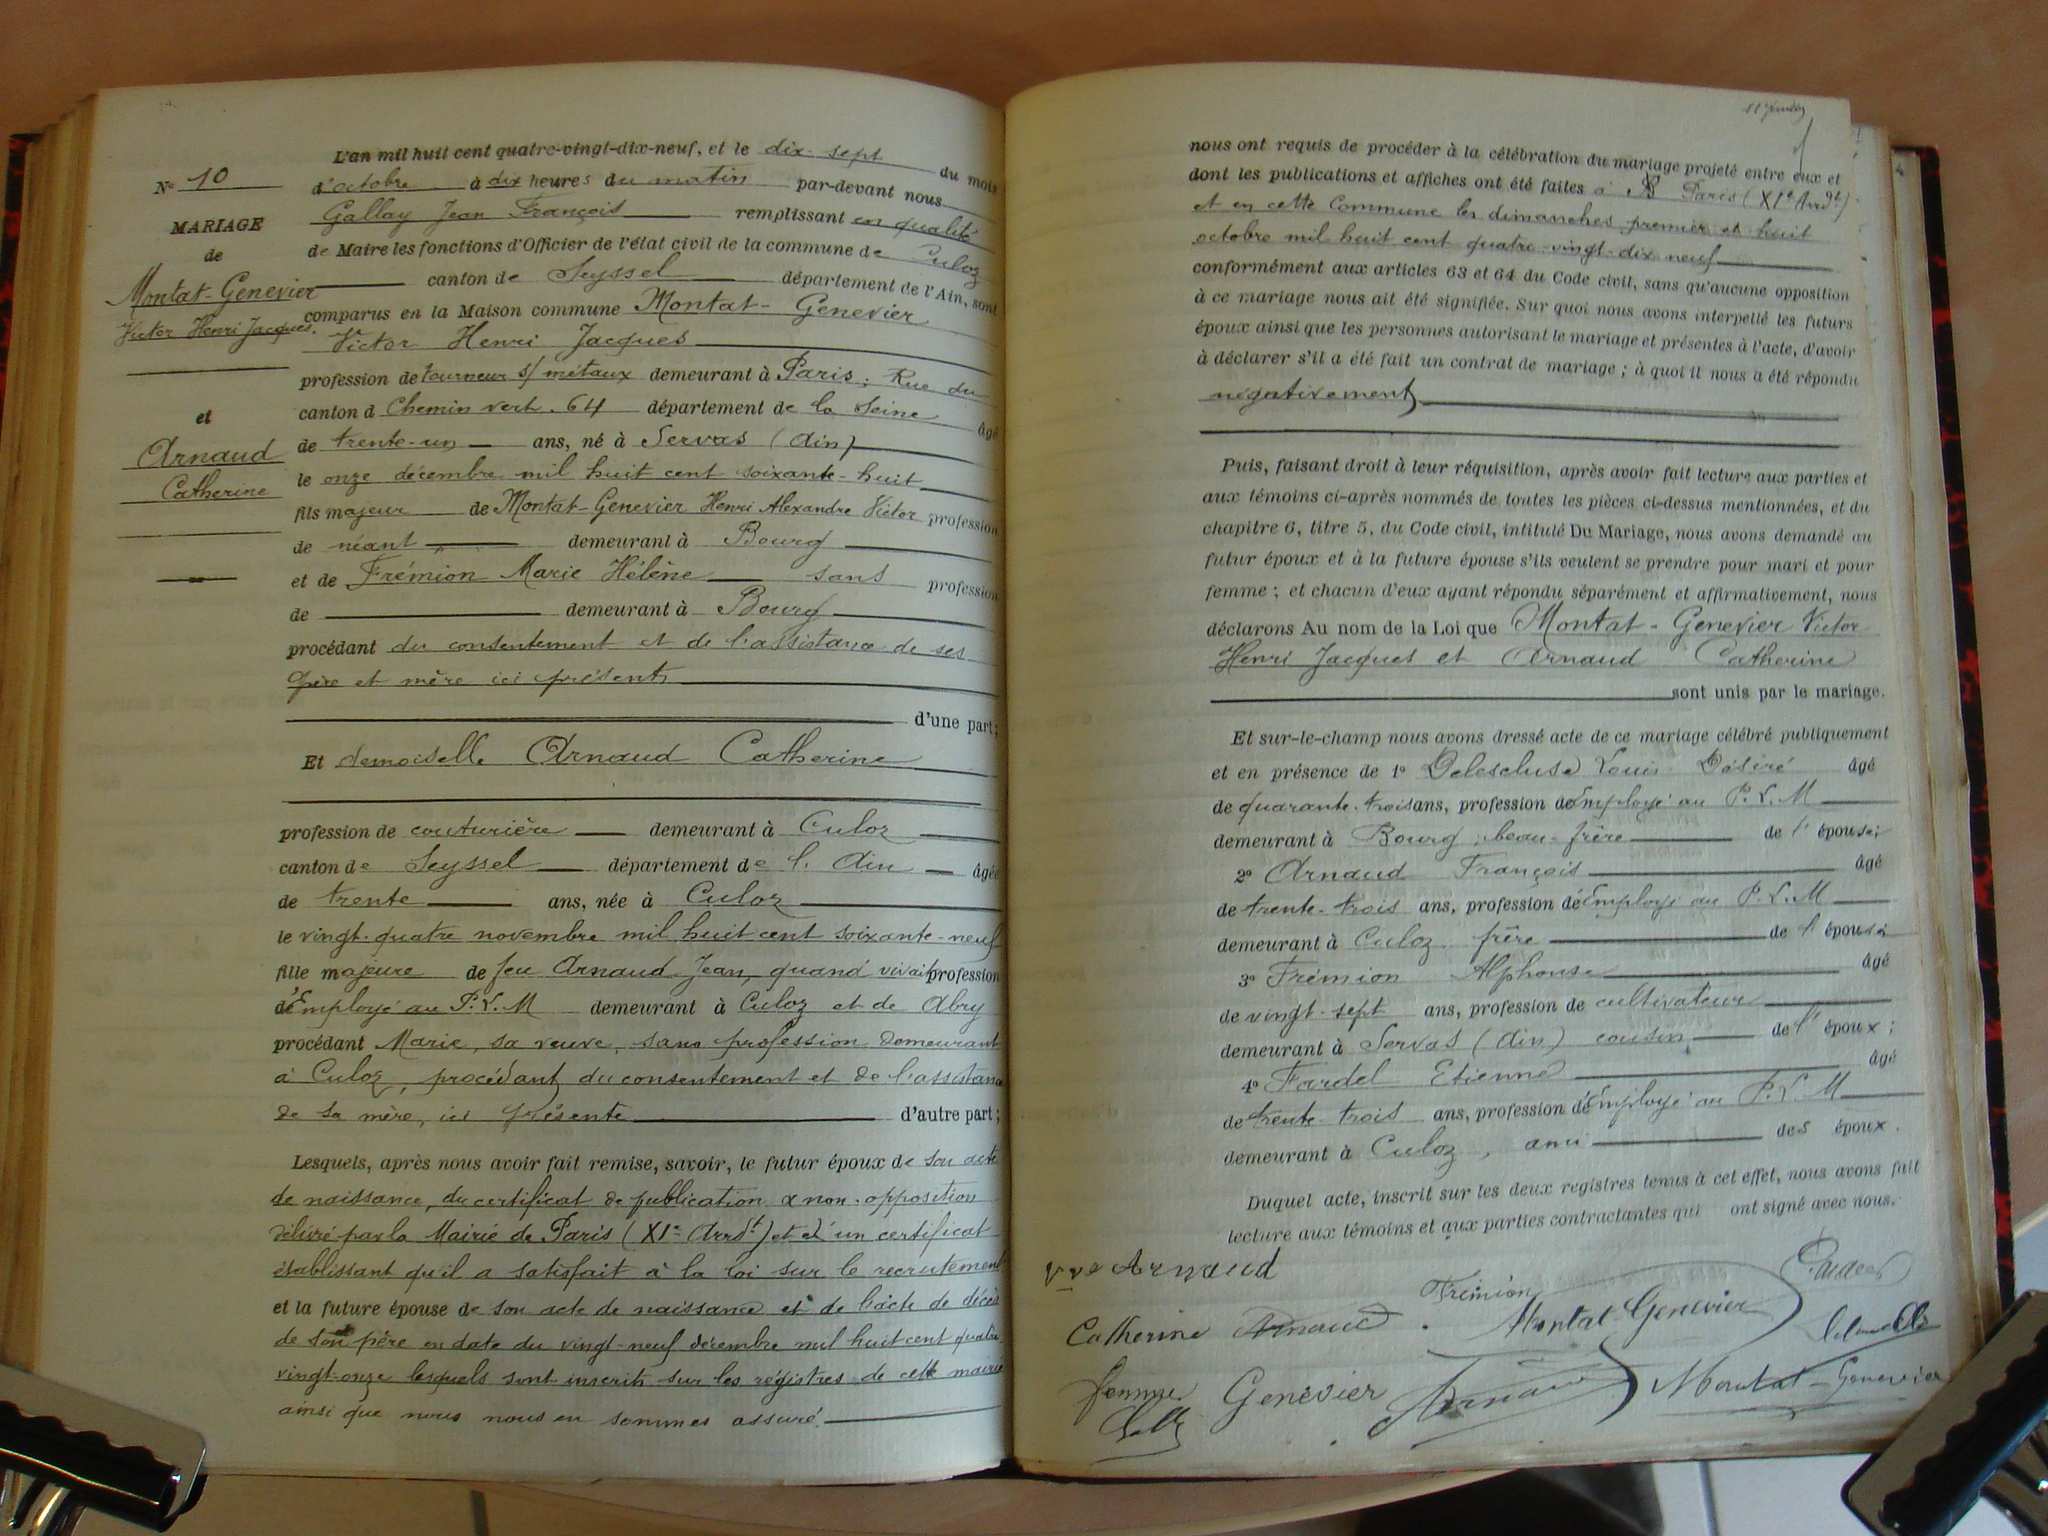 L'an mil huit cent quatre-vingt-dix-neuf, et le dix-sept du mois
N° 10
d'octobre à dix heures du matin par-devant nous
Gallay Jean François remplissant en qualité
MARIAGE
de
de Maire les fonctions d'Officier de l'état civil de la commune de Culoz
canton de Seyssel département de l'Ain, sont
Montat-Genevier
Victor Henri Jacques.
comparus en la Maison commune Montat-Genevier
Victor Henri Jacques
profession de tourneur s/ métaux demeurant à Paris, Rue du
canton d Chemin vert. 64 département de la Seine âgé
et
Arnaud
Catherine
de trente-un ans, né à Servas (Ain)
le onze décembre mil huit cent soixante-huit
fils majeur de Montat-Genevier Henri Alexandre Victor profession
de néant demeurant à Bourg
et de Frémion Marie Hélène sans profession
de demeurant à Bourg
procédant du consentement et de l'assistance de ses
père et mère ici présents
d'une part;
Et demoiselle Arnaud Catherine
profession de couturière demeurant à Culoz
canton de Seyssel département de l'Ain âgée
de trente ans, née à Culoz
le vingt-quatre novembre mil huit cent soixante-neuf
fille majeure de feu Arnaud Jean, quand vivait profession
d'Employé au P.L.M demeurant à Culoz et de Abry
procédant Marie, sa veuve, sans profession demeurant
à Culoz, procédant du consentement et de l'assistance
de sa mère, ici présente d'autre part;
Lesquels, après nous avoir fait remise, savoir, le futur époux de son acte
de naissance, du certificat de publication & non-opposition
délivré par la Mairie de Paris (XIe Arrdt) et d'un certificat
établissant qu'il a satisfait à la loi sur le recrutement
et la future épouse de son acte de naissance et de l'acte de décès
de son père en date du vingt-neuf décembre mil huit cent quatre
vingt-onze lesquels sont inscrits sur les régistres de cette mairie
ainsi que nous nous en sommes assuré.
nous ont requis de procéder à la célébration du mariage projeté entre eux et
dont les publications et affiches ont été faites à Paris (XIe Arrdt)
et en cette Commune les dimanches premier et huit
octobre mil huit cent quatre-vingt-dix neuf
conformément aux articles 63 et 64 du Code civil, sans qu'aucune opposition
à ce mariage nous ait été signifiée. Sur quoi nous avons interpellé les futurs
époux ainsi que les personnes autorisant le mariage et présentes à l'acte, d'avoir
à déclarer s'il a été fait un contrat de mariage ; à quoi il nous a été répondu
négativement
Puis, faisant droit à leur réquisition, après avoir fait lecture aux parties et
aux témoins ci-après nommés de toutes les pièces ci-dessus mentionnées, et du
chapitre 6, titre 5, du Code civil, intitulé Du Mariage, nous avons demandé au
futur époux et à la future épouse s'ils veulent se prendre pour mari et pour
femme ; et chacun d'eux ayant répondu séparément et affirmativement, nous
déclarons Au nom de la Loi que Montat-Genevier Victor
Henri Jacques et Arnaud Catherine
sont unis par le mariage.
Et sur-le-champ nous avons dressé acte de ce mariage célébré publiquement
et en présence de 1° Delescluse Louis Désiré âgé
de quarante-trois ans, profession d'Employé au P.L.M
demeurant à Bourg, beau-frère de l'épouse;
2° Arnaud François âgé
de trente-trois ans, profession d'Employé au P.L.M
demeurant à Culoz frère de l'épouse
3° Frémion Alphonse âgé
de vingt-sept ans, profession de cultivateur
demeurant à Servas (Ain) cousin de l'époux;
4° Fardel Etienne âgé
de trente-trois ans, profession d'Employé au P.L.M
demeurant à Culoz, ami des époux.
Duquel acte, inscrit sur les deux registres tenus à cet effet, nous avons fait
lecture aux témoins et aux parties contractantes qui ont signé avec nous.
Vve Arnaud
Frémion
Catherine Arnaud
Montat-Genevier
femme Genevier
Arnaud
Montat-Genevier